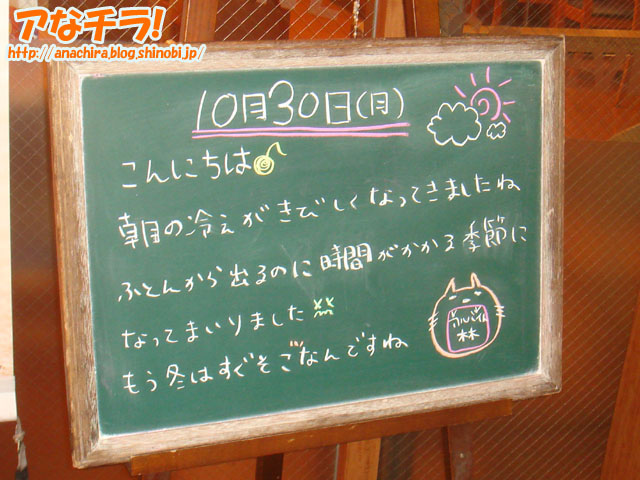 アなチラ!
http://anachira.blog.shinobi.jp/
10月30日(月)
こんにちは
朝の冷えがきびしくなってきましたね
ふとんから出るのに時間がかかる季節に
なってまいりました
もう冬はすぐそこなんですね
アルバイト
林